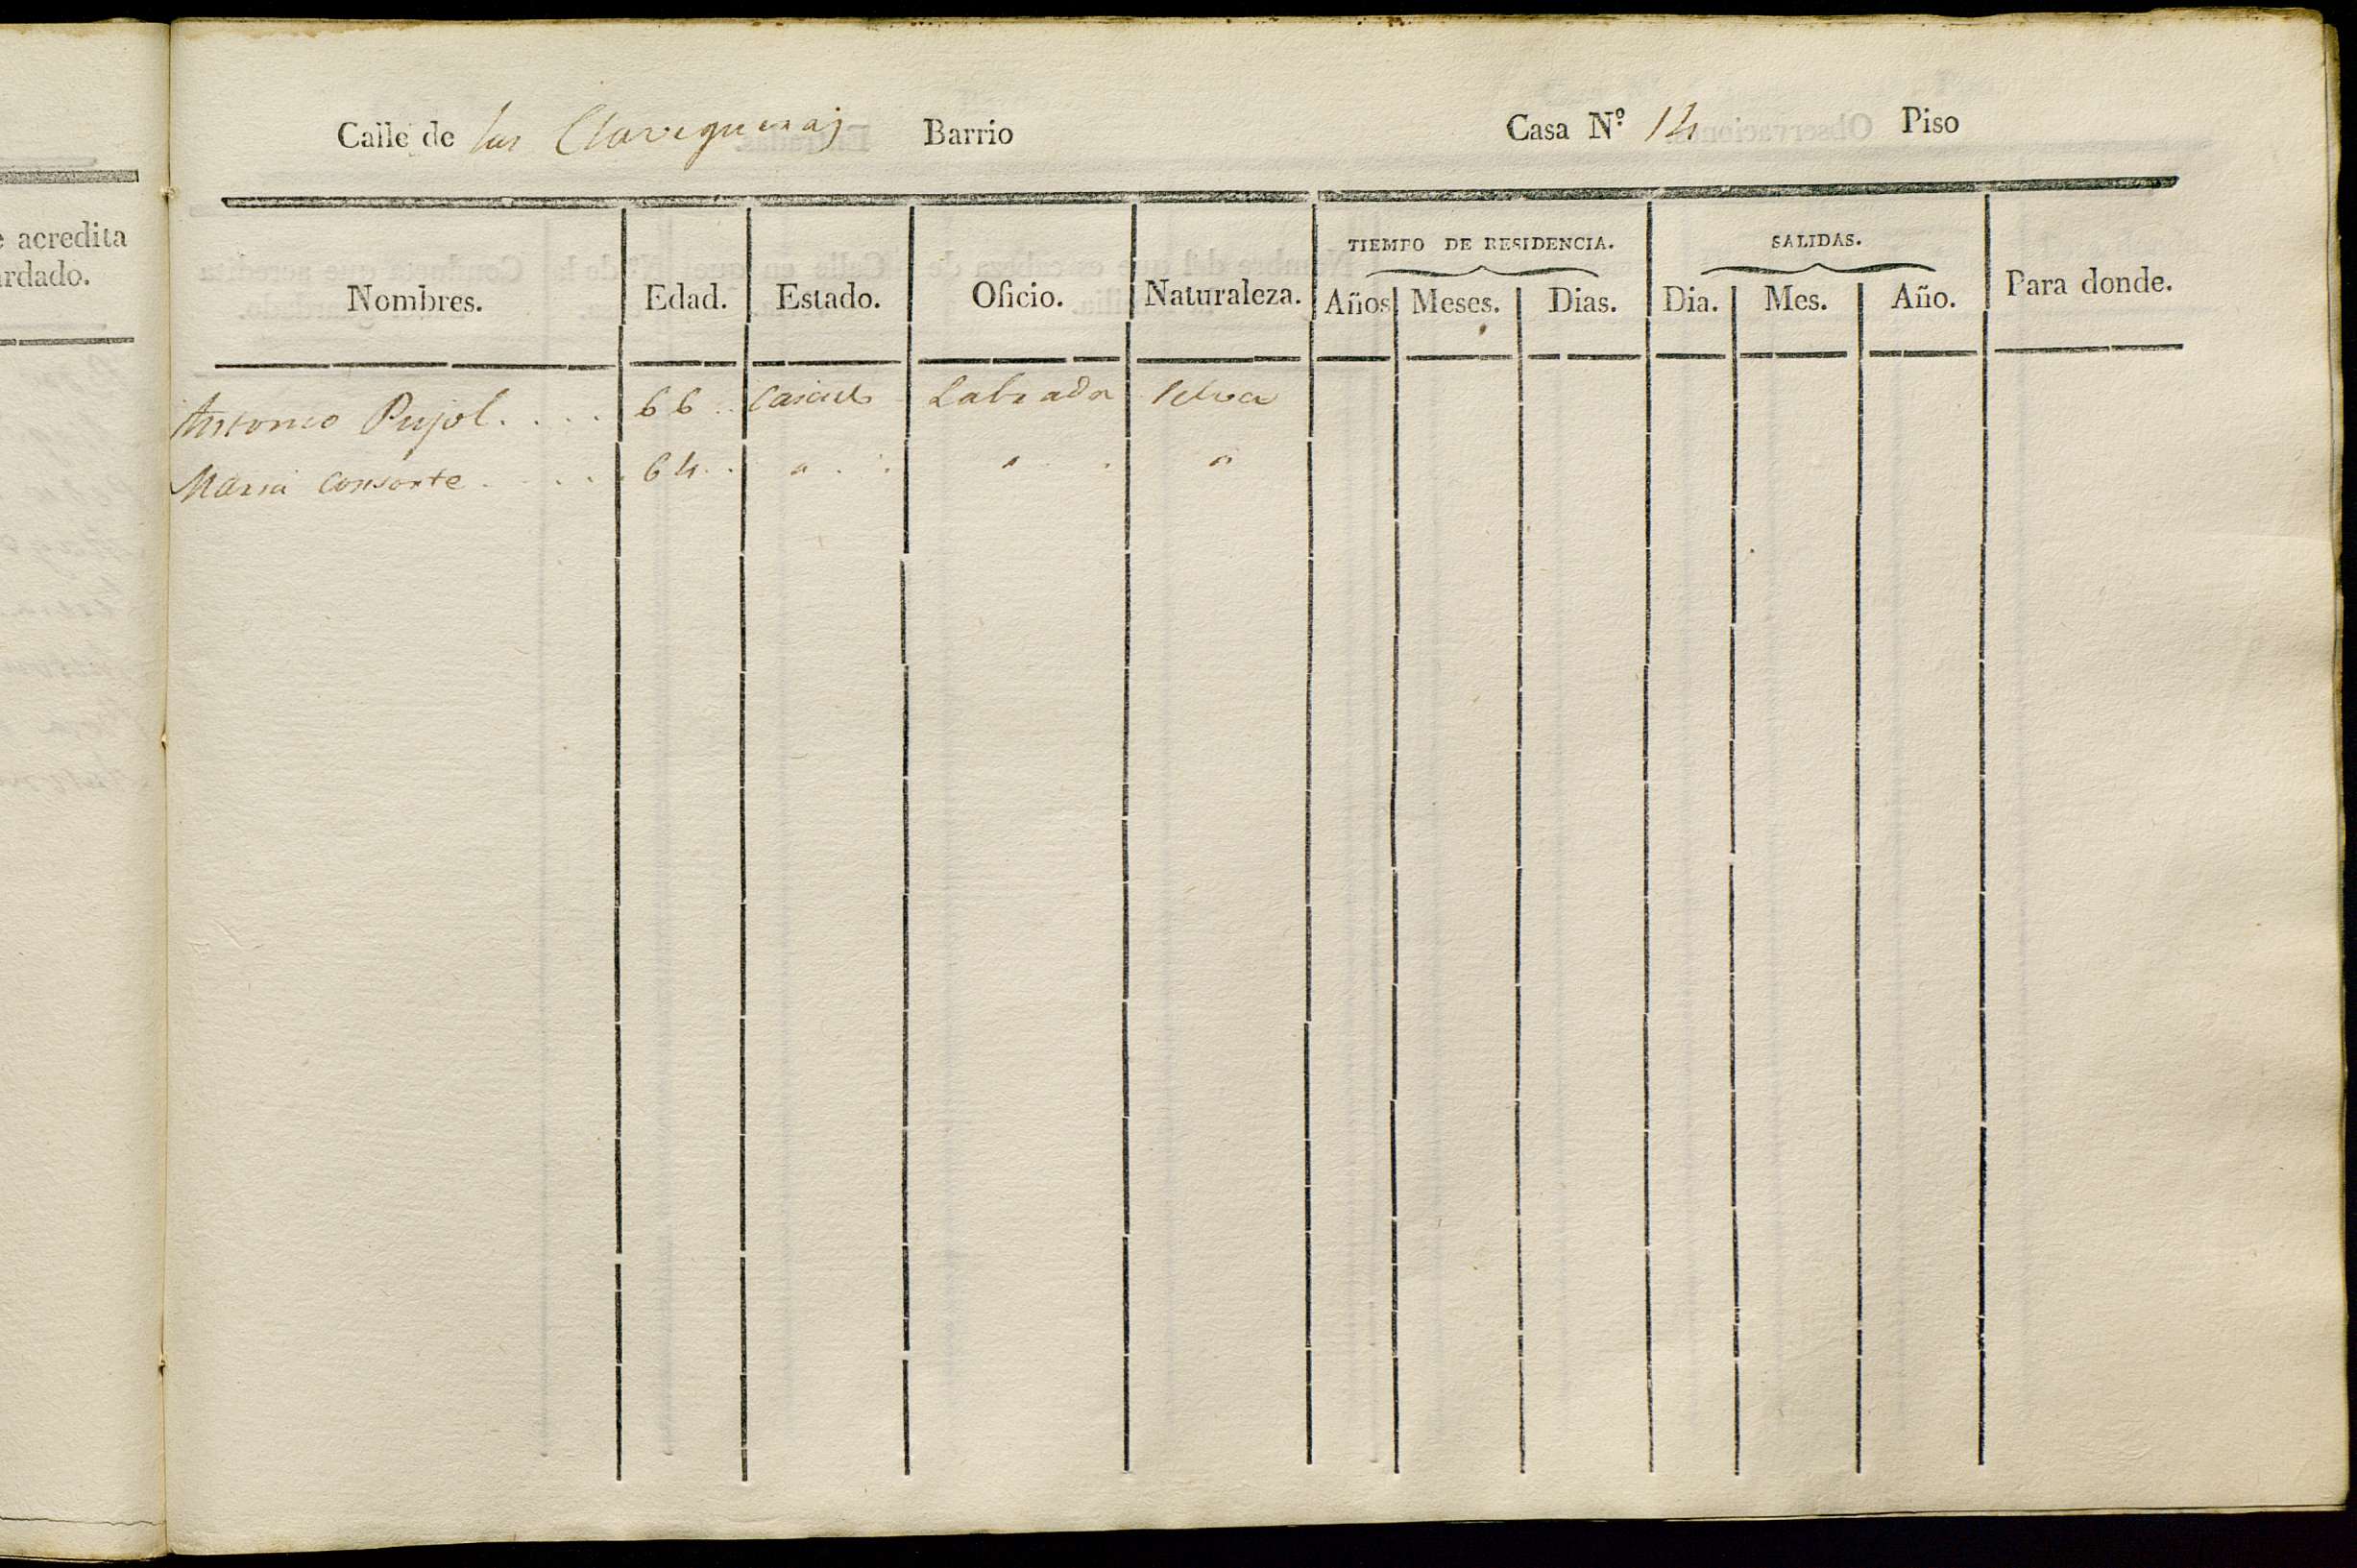 e acredita
ardado.
Calle de las Clavegueras Barrio Casa Nº 14 Piso
Nombres. Edad. Estado. Oficio. Naturaleza. TIEMPO DE RESIDENCIA. Años Meses. Dias. SALIDAS. Dia. Mes. Año. Para donde.
Antonio Pujol. . . . 66 . . Casado Labrador Selva
Maria consorte . . . . . 64 . . " . . " . . "